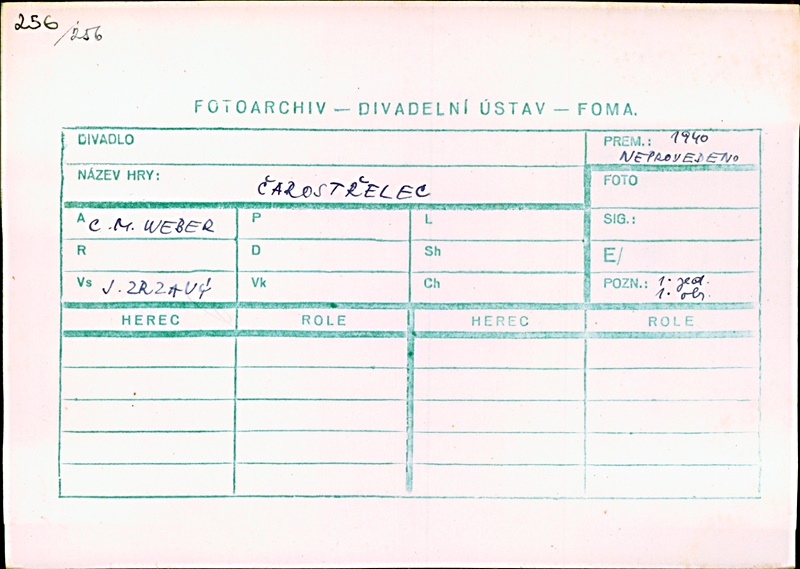 256
/256
FOTOARCHIV — DIVADELNÍ ÚSTAV — FOMA.
DIVADLO
PREM.: 1940
NEPROVEDENO
NÁZEV HRY: ČAROSTŘELEC
FOTO
A C. M. WEBER P L SIG.:
R D Sh E/
Vs J. ZRZAVÝ Vk Ch POZN.: 1. jed.
1. obr.
HEREC ROLE HEREC ROLE